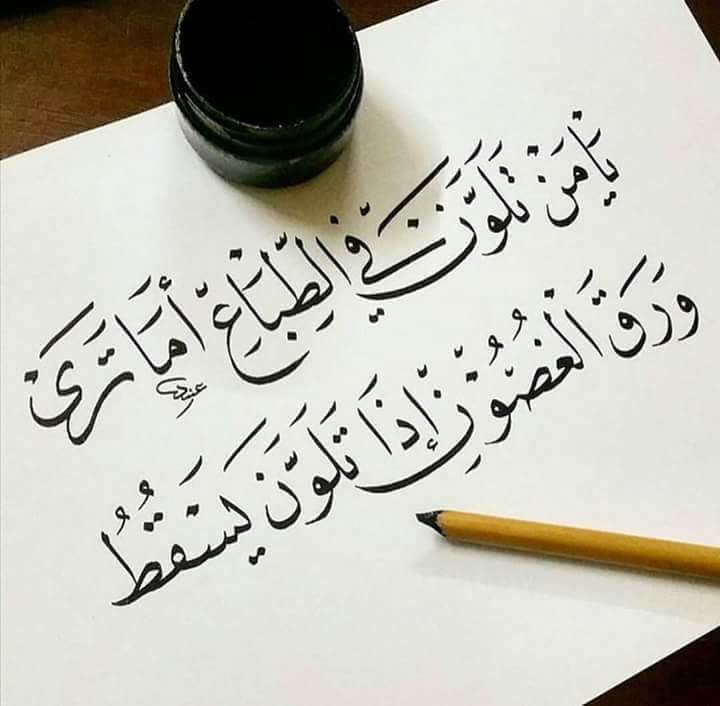 يَا مَنْ تَلَوَّنَ فِي الطِّبَاعِ أَمَا تَرَى
وَرَقَ الْغُصُوْنِ إِذَا تَلَوَّنَ يَسْقُطُ